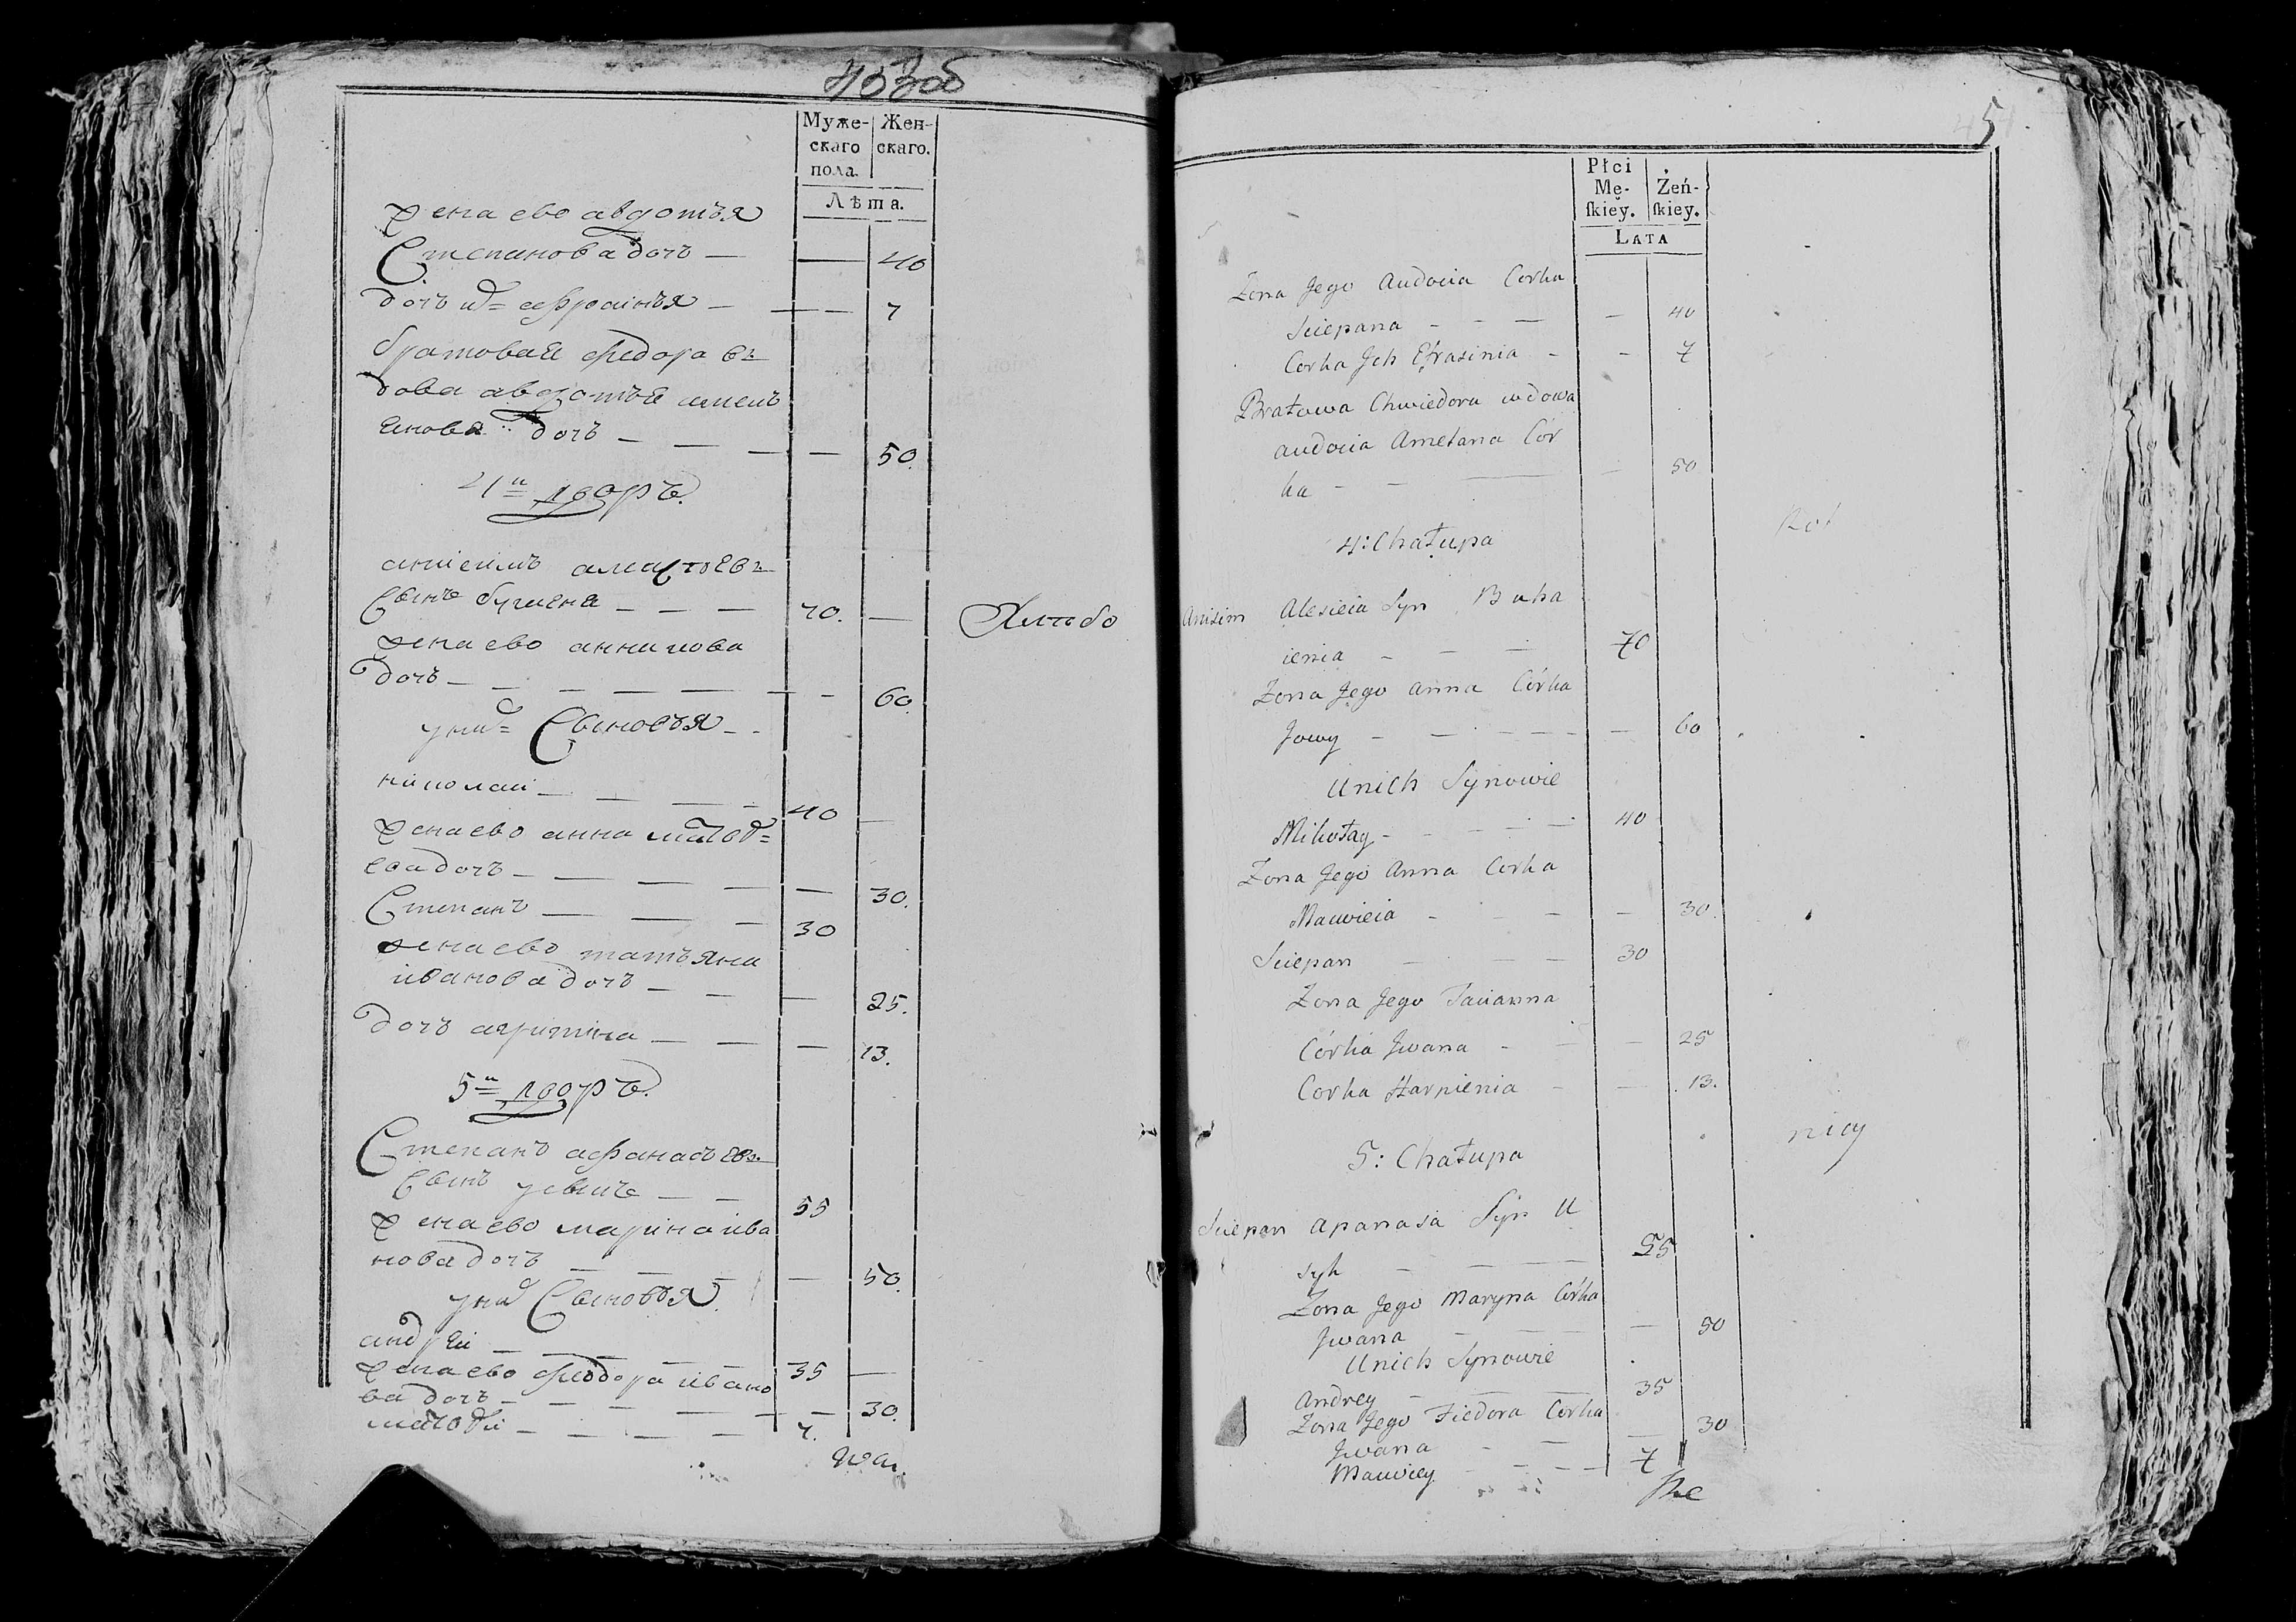 453об
Муже-
скаго
пола.
Жен-
скаго.
Лѣта.
жена ево авдотья
Степанова дочь — — 40
дочь их= афросинья — — — 7
братовая федора в=
дова авдотья амель
янова дочь — — — — 50.
4й= дворъ.
анисимъ алексѣев=
сынъ бугаеня — — — 70. —
жена ево анна иова
дочь — — — — — — — 60.
у них= сыновья - -
николай — — — — 40 —
жена ево анна матвѣ=
ева дочь — — — — — 30.
Степанъ — — — 30
жена ево татьяна
иванова дочь — — — 25.
дочь агрипина — — — 13.
5й= дворъ.
Степанъ афанасьев=
сынъ усыкъ — — 55
жена ево марина ива
нова дочь — — — — 50.
у них сыновья.
андрей — — — — — 35 —
жена ево федора ивано
ва дочь — — — — — — 30.
матвѣй — — — — 7.
5
Płci
Mę-
ſkiey.
Żeń-
ſkiey.
Lata
Zona Jego Audocia Corka
Sciepana - - — — 40
Corka Jch Efrasinia - - 7
Bratowa Chwiedora wdowa
audocia Ametana Cor
ka - - — — 50
4: Chałupa
Anisim Alesieia Syn Buha
ienia - — — 70
Zona Jego Anna Córka
Jowy - — - - - - — 60
Unich Synowie
Mikołay - - - - - 40
Zona Jego Anna Corka
Maciwieia - - - — 30.
Sciepan - — — 30
Zona Jego Tacianna
Córka Jwana - — — 25
Corka Harpienia - — 13.
5: Chałupa
Sciepan Apanasa Syn U
syk - — — 55
Zona Jego Maryna Córka
Jwana - — — 50
Unich Synowie
Andrey - — — 35
Zona Jego Fiedora Corka
Jwana - — — 30
Maciwiey - - - — 7